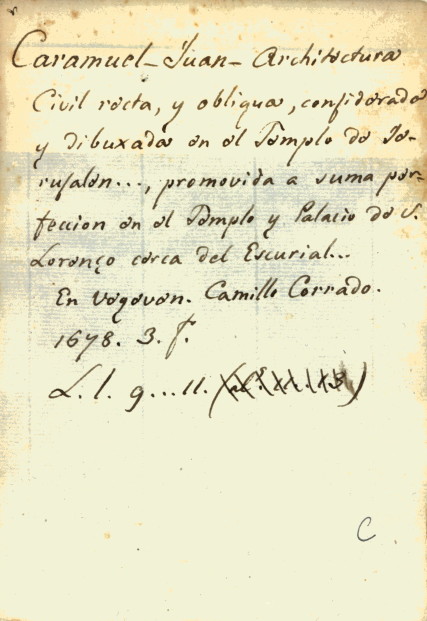 Caramuel - Juan - Architectura
Civil recta, y obliqua, considerada
y dibuxada en el Templo de Je-
rusalen..., promovida a suma per-
feccion en el Templo y Palacio de S.
Lorenço cerca del Escurial...
En Vegeven. Camillo Corrado.
1678. 3. f.
L. l. 9...11.
C